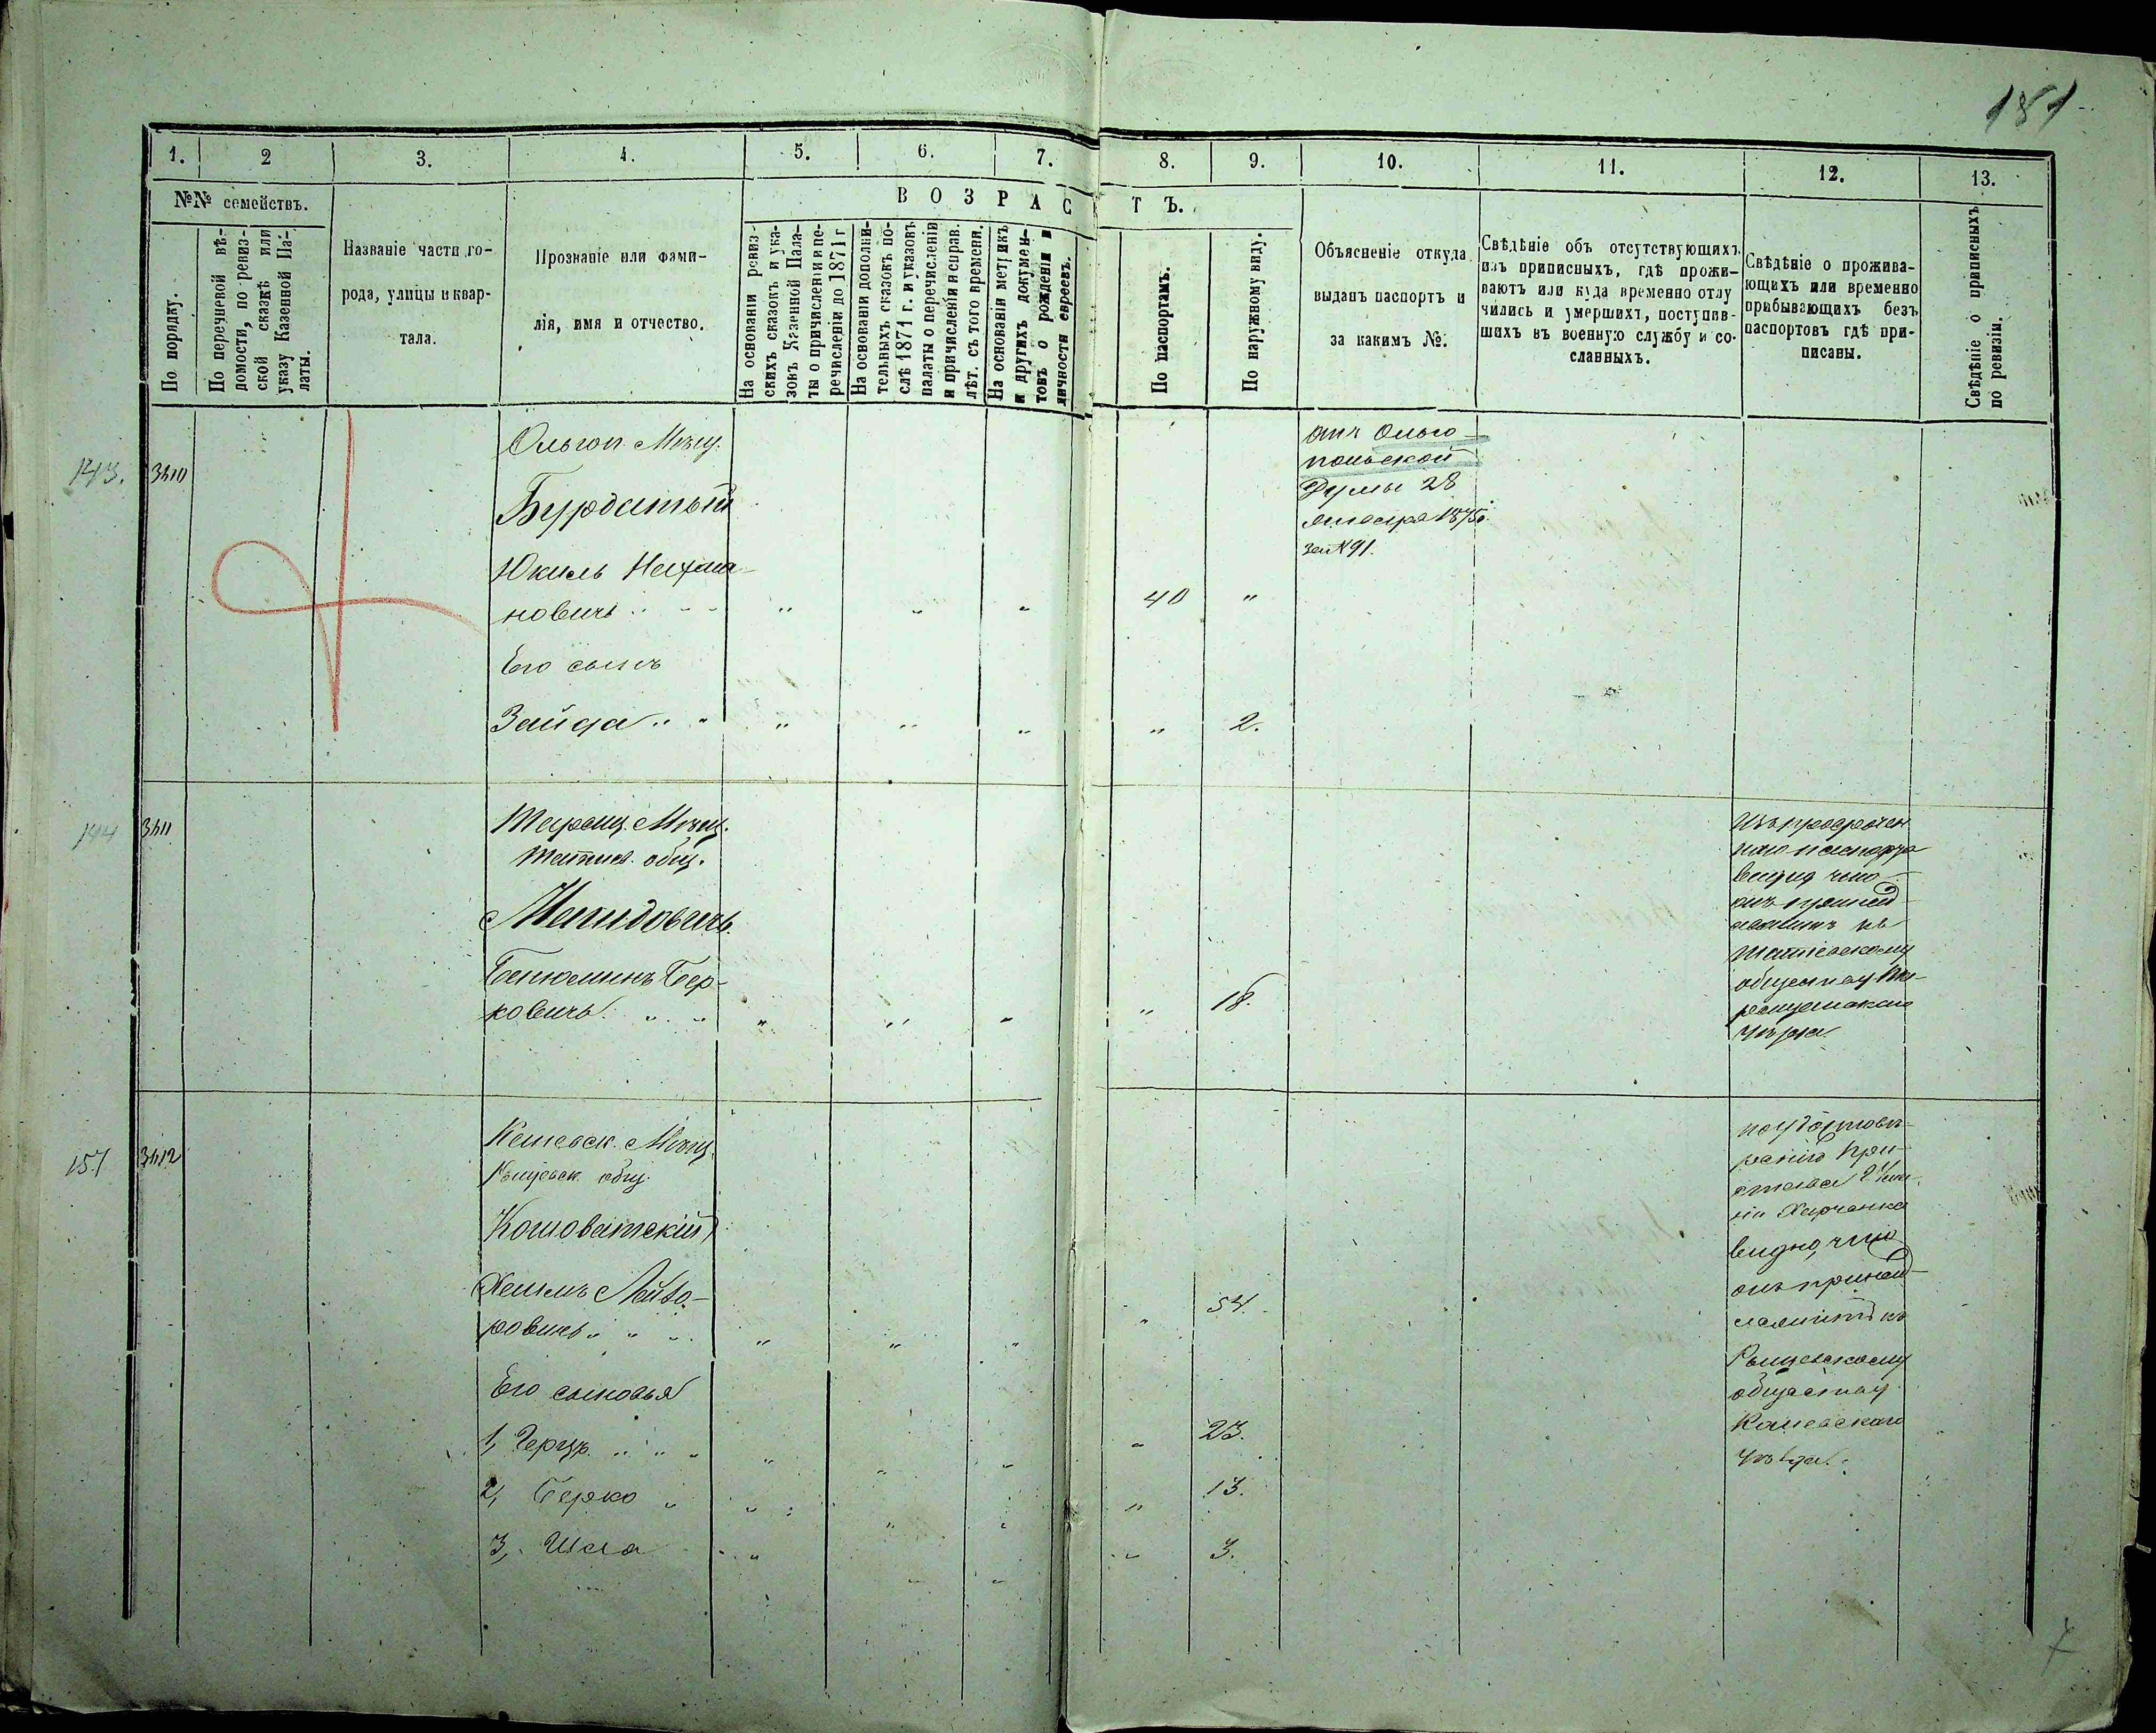 181
1.
2
3.
4.
5.
6.
7.
8.
9.
10.
11.
12.
13.
№№ семействъ.
ВОЗРАСТЪ.
По порядку.
По перечневой вѣ-
домости, по ревиз-
ской сказкѣ или
указу Казенной Па-
латы.
Названіе части го-
рода, улицы и квар-
тала.
Прозваніе или фами-
лія, имя и отчество.
На основаніи ревиз-
скихъ сказокъ и ука-
зовъ Казенной Пала-
ты о причисленіи и пе-
речисленіи до 1871 г
На основаніи дополни-
тельныхъ сказокъ по-
слѣ 1871 г. и указовъ
палаты о перечисленіи
и причисленіи и справ.
лѣт. съ того времени.
На основаніи метрикъ
и другихъ докумен-
товъ о рожденіи и
личности евреевъ.
По паспортамъ.
По наружному виду.
Объясненіе откуда
выданъ паспортъ и
за какимъ №.
Свѣдѣніе объ отсутствующихъ
изъ приписныхъ, гдѣ прожи-
ваютъ или куда временно отлу
чились и умершихъ, поступив-
шихъ въ военную службу и со-
сланныхъ.
Свѣдѣніе о прожива-
ющихъ или временно
прибывающихъ безъ
паспортовъ гдѣ при-
писаны.
Свѣдѣніе о приписныхъ
по ревизіи.
143. 3410
Ольгоп. Мѣщ.
Бурдатый
Юкиль Нахма-
новичъ " " " 40 "
Его сынъ
Зайда " " " " " " 2.
отъ Ольго-
польской
Думы 28
января 1875г.
за №91.
144 3411
Таращ. Мѣщ.
Татіев. общ.
Бенюминъ Бер-
ковичъ " " " " " " 18.
Изъ просрочен
наго паспорта
видно что
онъ принад
лежитъ къ
Татіевскому
обществу Та-
ращанскаго
уѣзда
157 3412
Каневск. Мѣщ.
общ.
Кошоватскій
Хаимъ Лейзо-
ровичъ " " " " " " " 54.
Его сыновья
1, Герцъ " " " " " " " 23.
2, Берко " " " " " 13.
3, Шая " " " " 3.
по удостовѣ-
ренію При-
става 2 ча-
сти Харченка
видно, что
онъ принад-
лежитъ къ
обществу
Каневскаго
уѣзда.